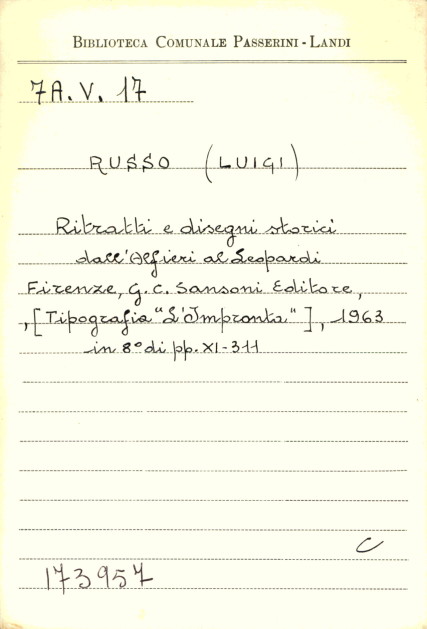 BIBLIOTECA COMUNALE PASSERINI - LANDI
7A.V. 17
RUSSO (LUIGI)
Ritratti e disegni storici
dall'Alfieri al Leopardi
Firenze, G.C. Sansoni Editore,
,[Tipografia "L'Impronta"], 1963
in 8° di pp. XI-311
C
173957